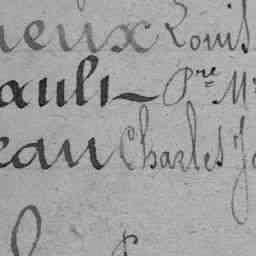 ieux Louis
ault Pre M
eau Charles J